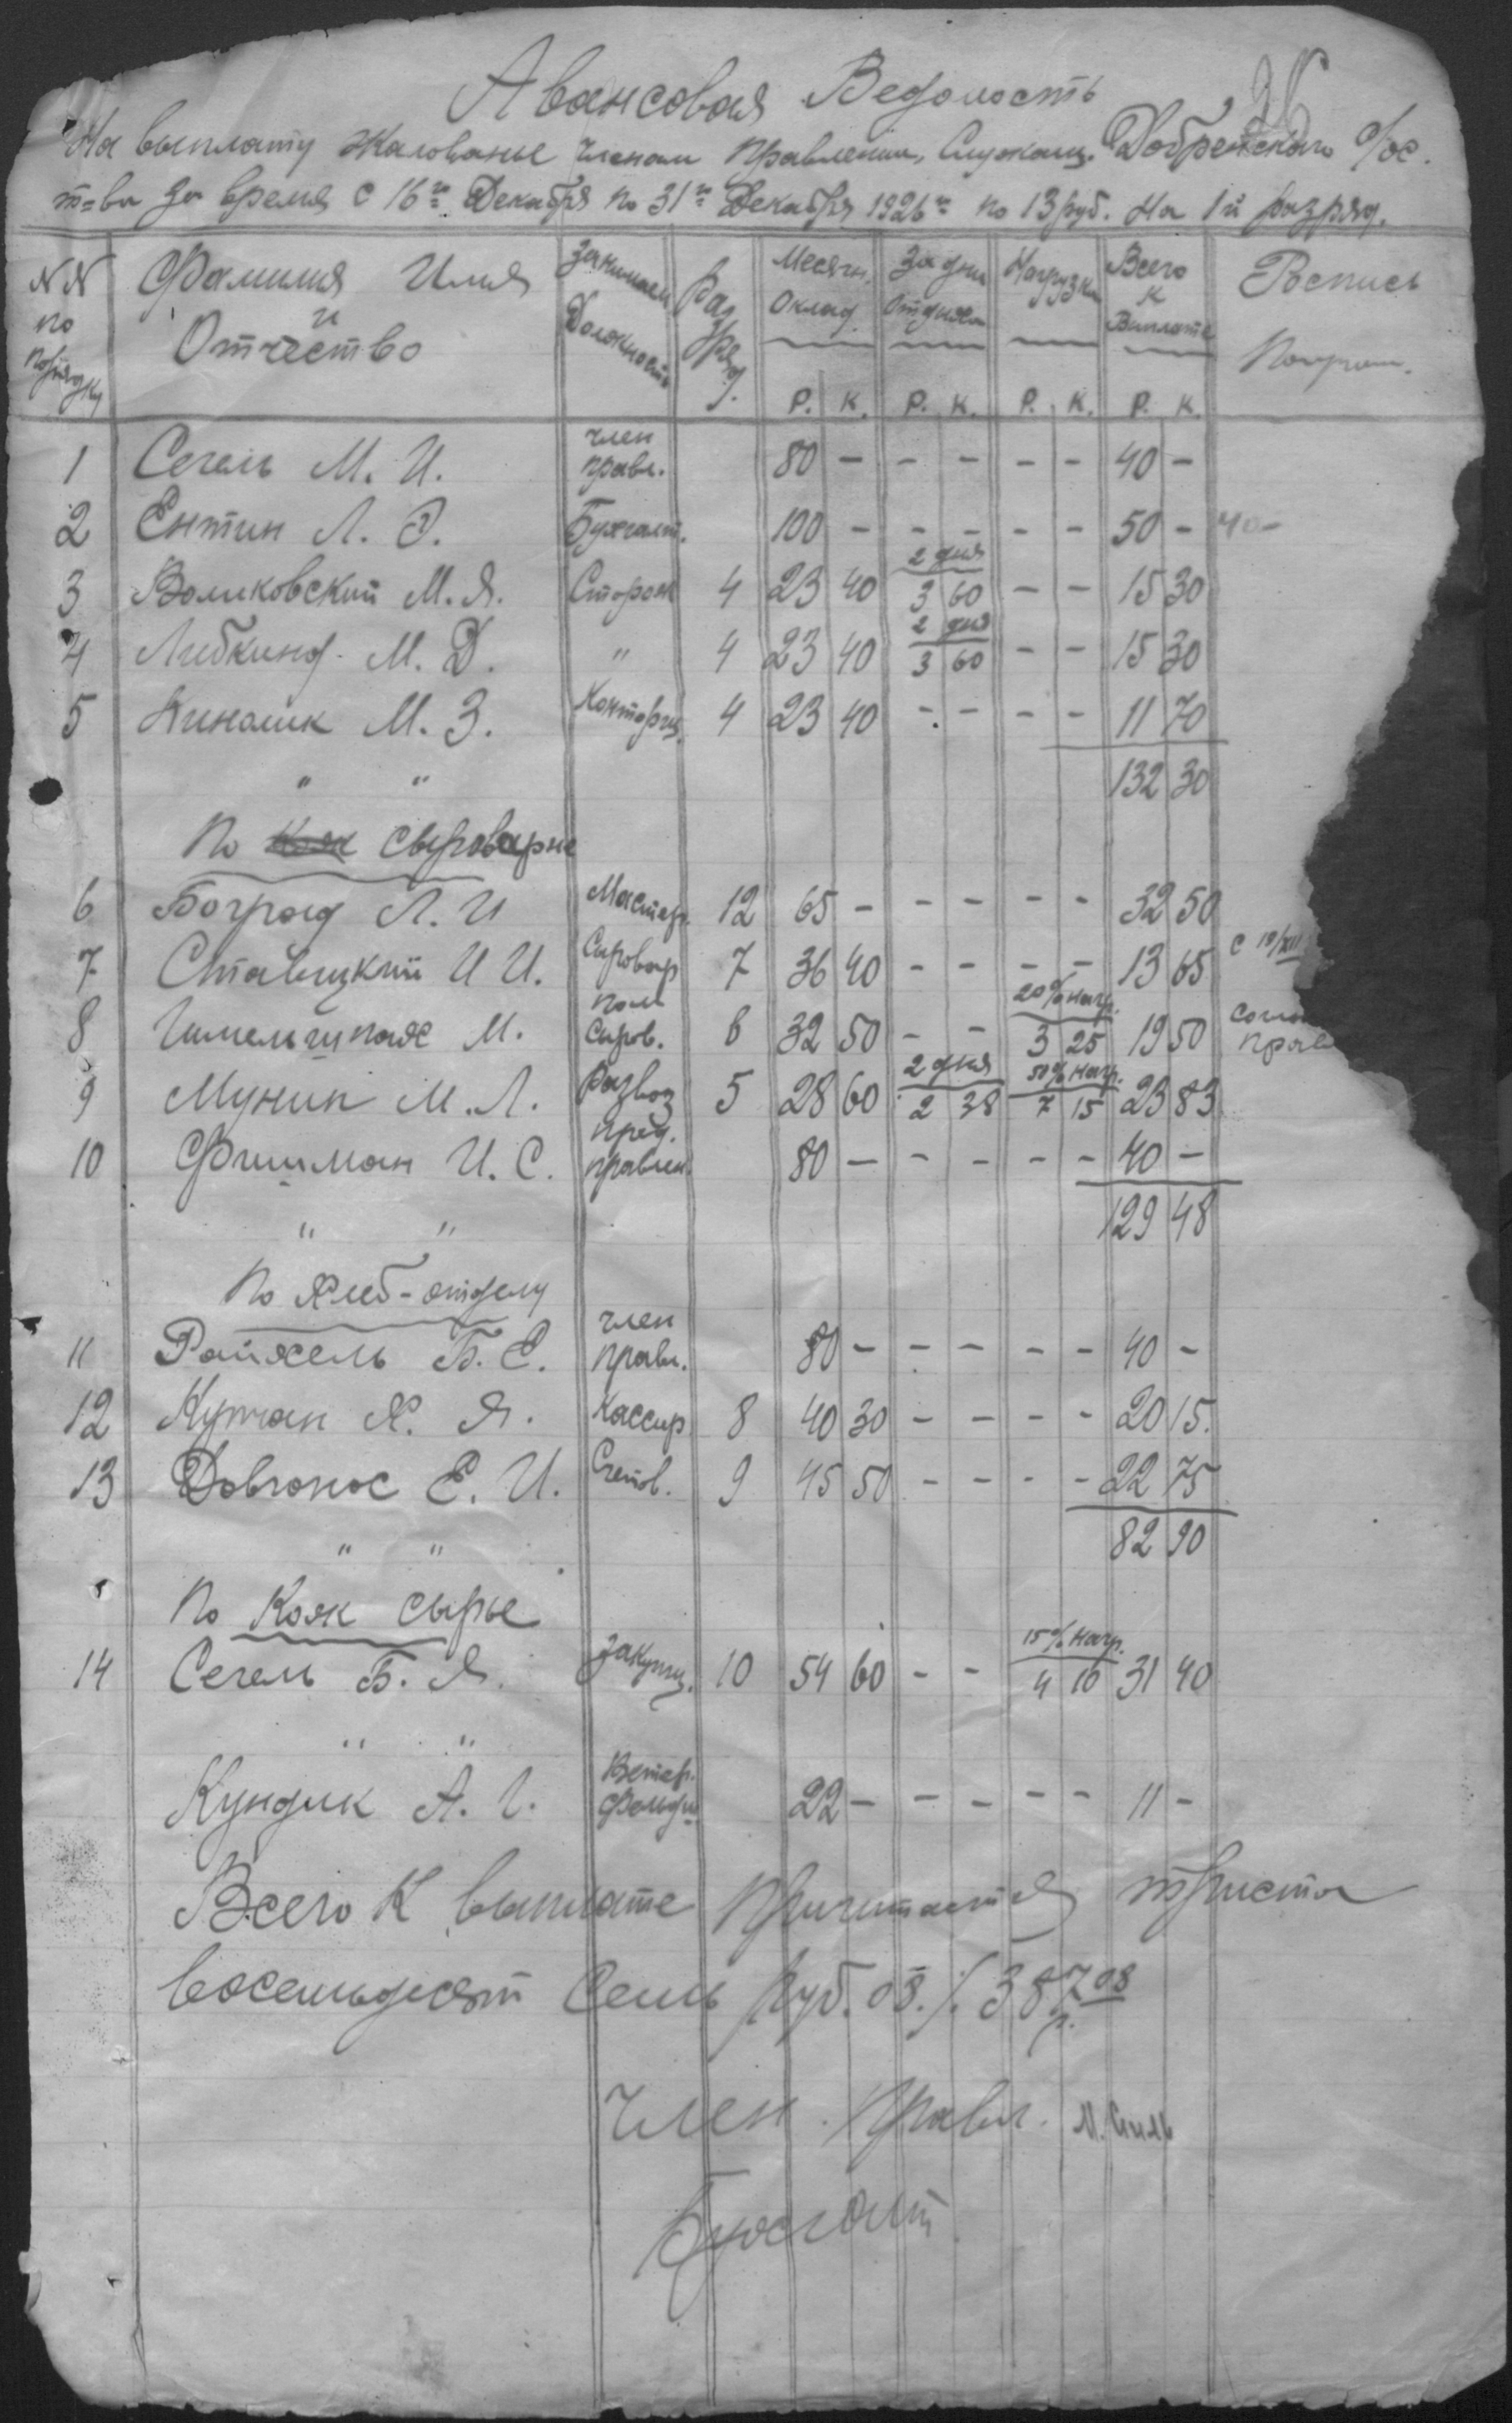 Авансовая Ведомость
26
На выплату жалованье членам Правления, Служащ. Добренского с/хоз.
т-ва за время с 16го Декабря по 31го Декабря 1926г. по 13 руб. на 1й разряд.
NN по порядку Фамилия Имя и Отчество Занимаем Должность Разряд. Месячн. Оклад За дни Отдыха Нагрузки Всего к Виплате Роспись Получат.
Р. К. Р. К. Р. К. Р. К.
1 Сегель М. И. член правл. 80 – – – – – 40 –
2 Ентин Л. Э. Бухгалт. 100 – – – – – 50 – 40 –
3 Воликовский М. Я. Сторож 4 23 40 2 дня 3 60 – – 15 30
4 Либкинд М. Д. " 4 23 40 2 дня 3 60 – – 15 30
5 М. З. Конторщ. 4 23 40 – – – – 11 70
" " 132 30
По Кож сыроварне
6 Боград Л. И Мастер. 12 65 – – – – – 32 50
7 Ставицкий И И. Сыровар 7 36 40 – – – – 13 65 с 19/XII
8 Гимельшпояс М. пом сыров. 6 32 50 – – 20% нагр. 3 25 19 50
9 Мунин М. Л. Развоз 5 28 60 2 дня 2 38 50% нагр. 7 15 23 83
10 Фишман И. С. пред. правлен. 80 – – – – – 40 –
" " 129 48
По Хлеб-отделу
11 Райхель Б. Е. член правл. 80 – – – – – 40 –
12 Кутман Х. Я. Кассир 8 40 30 – – – – 20 15.
13 Довгонос Е. И. Счетов. 9 45 50 – – – – 22 75
" " 82 90
По Кож сырье
14 Сегель Б. Я. Закупщ. 10 54 60 – – 15% нагр. 4 10 31 40
" "
Кундик А. Г. Ветер. фельдш 22 – – – – – 11 –
Всего к выплате Причитается триста
восемьдесят Семь Руб. 08. /. 387 р. 08
Член Правл.
Бухгалт